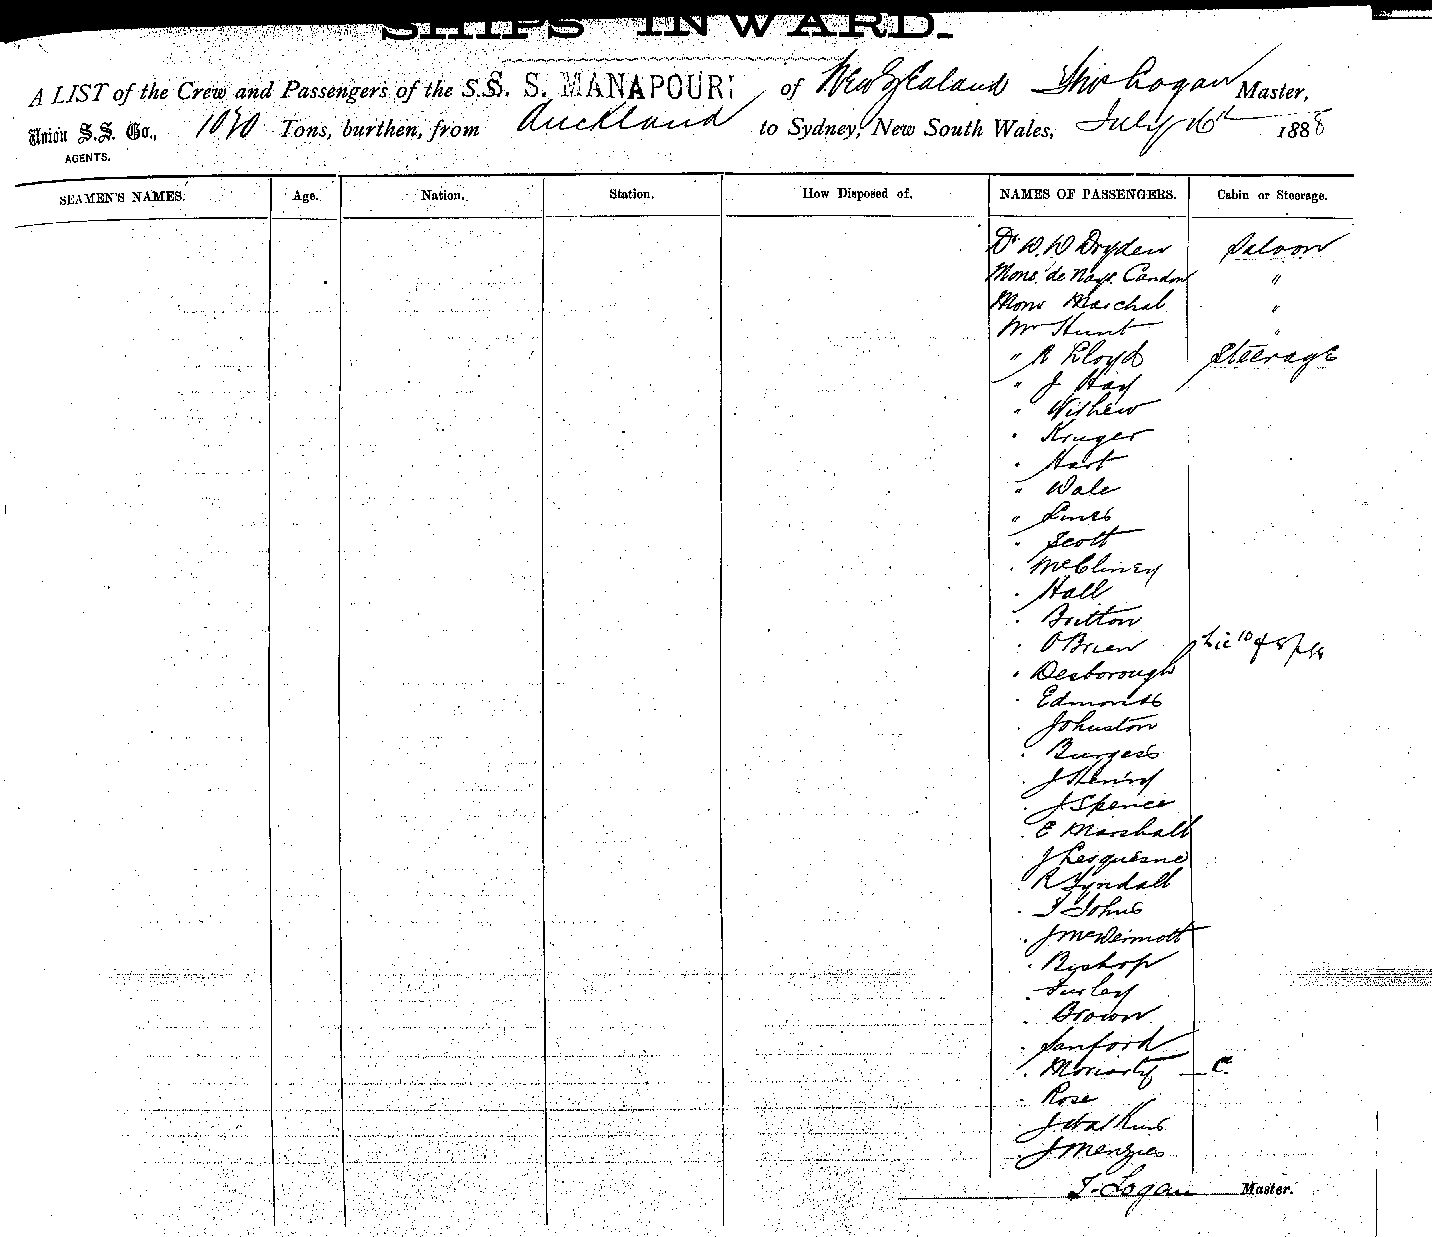 SHIPS INWARD.
A LIST of the Crew and Passengers of the S.S. S. MANAPOURI of New Zealand Thos Logan Master,
Union S.S. Co., Tons, burthen, from Auckland to Sydney, New South Wales, July 16th 1888
AGENTS.
SEAMEN'S NAMES. Age. Nation. Station. How Disposed of. NAMES OF PASSENGERS. Cabin or Steerage.
Dr W. W Dryden Saloon
Mons de Nays. Candon "
Mons Marchal "
Mr Hunt "
" R Lloyd Steerage
" J Hay
" Withew
" Kruger
" Hart
" Wale
" Lines
" Scott
" McCliney
" Hall
" Britton
" O'Brien
" Desborough
" Edmonds
" Johnston
" Burgess
" J Henry
" J Spence
" E Marshall
" J Lesquesne
" R Tyndall
" J Johns
" J McDermott
" Bishop
" Furley
" Brown
" Sanford
" Moriarty C.
" Rose
" J Watkins
" J Menzies
T. Logan Master.